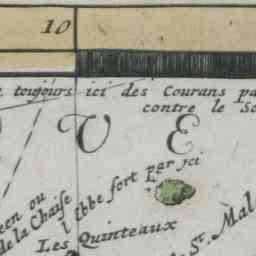 10
toujours ici des Courans pa
contre le So
V E
een ou
de la Chaise
l ibbe fort par ici
Les Quinteaux
St. Mal